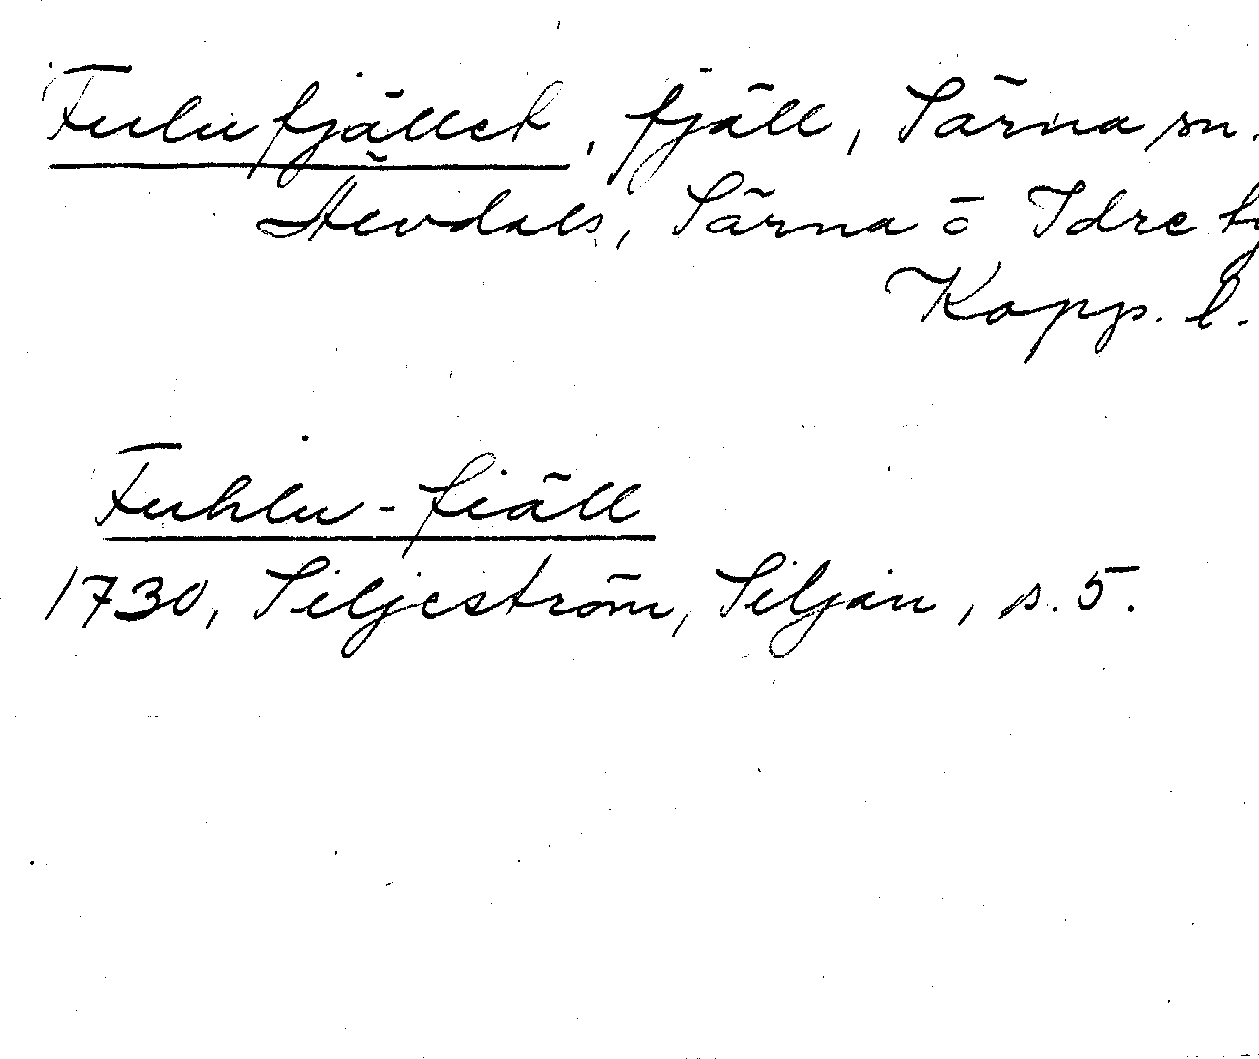 Fulufjället, fjäll, Särna sn.
Älvdals, Särna o Idre
Kopp. l.
Fuhlu-fiäll
1730, Siljeström, Siljan, s. 5.